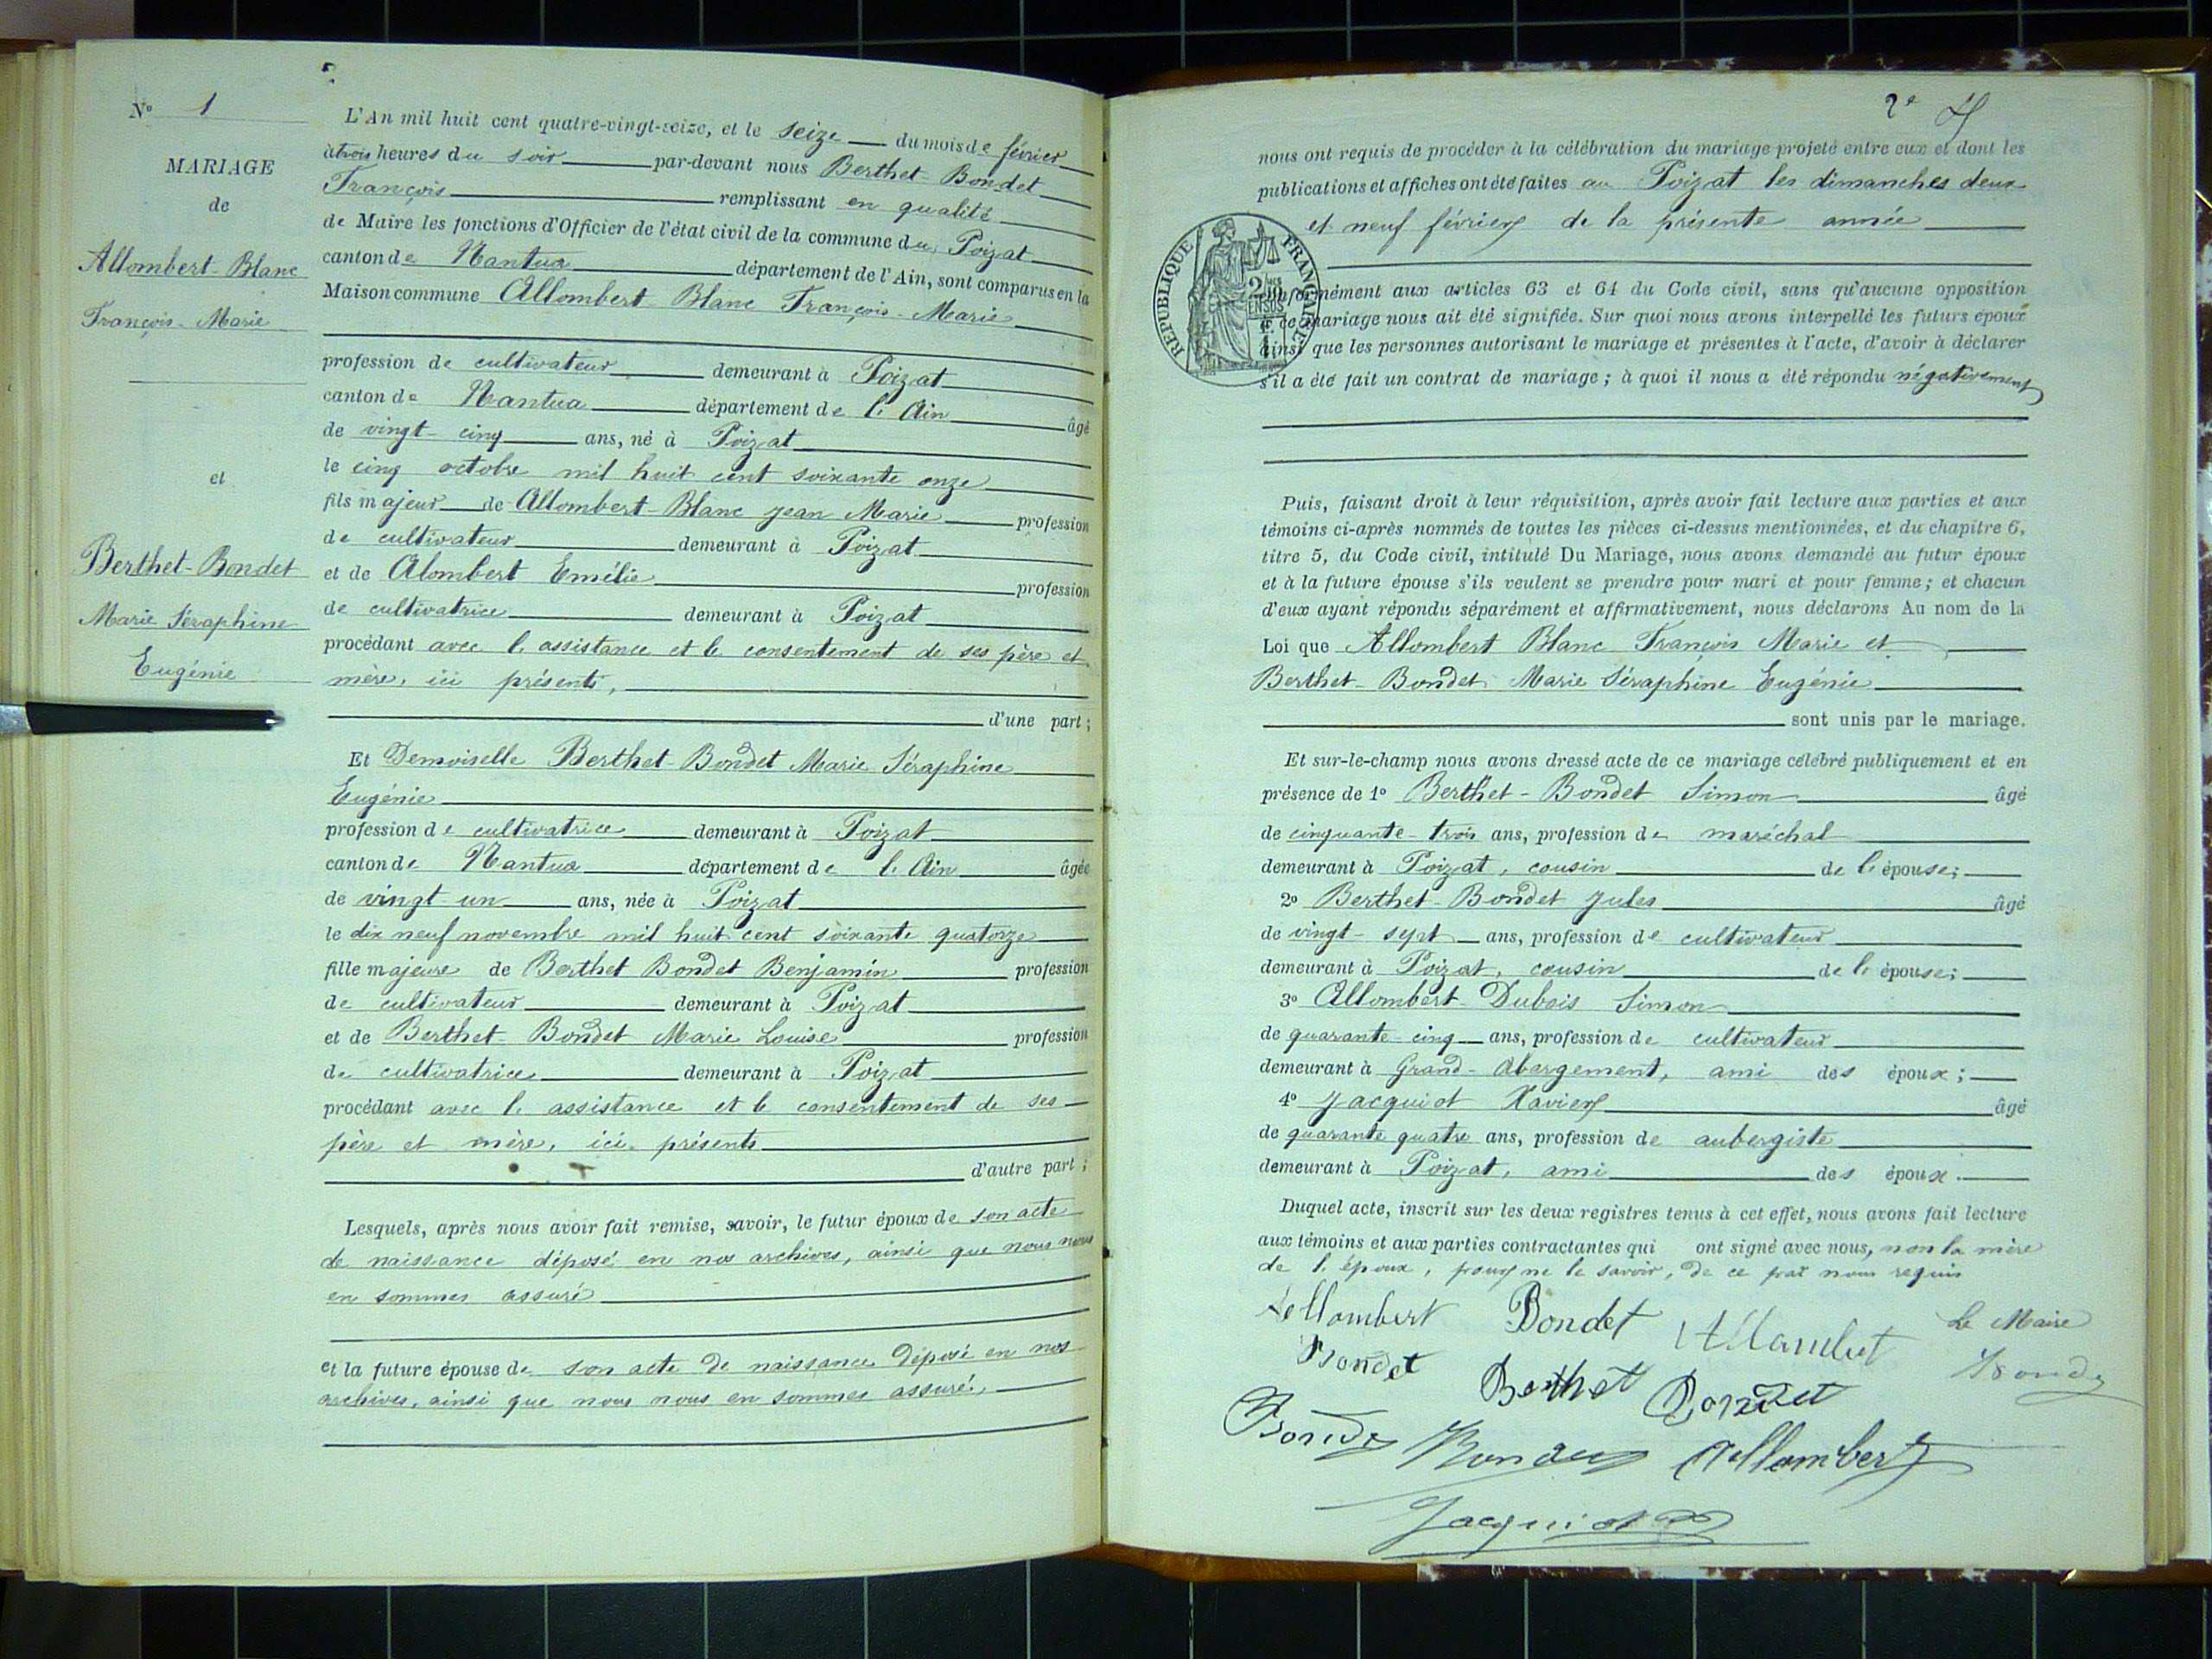 N° 1
MARIAGE
de
Allombert-Blanc
François-Marie
et
Berthet-Bondet
Marie Séraphine
Eugénie
L'An mil huit cent quatre-vingt-seize, et le seize du mois de février
à trois heures du soir par-devant nous Berthet-Bondet
François remplissant en qualité
de Maire les fonctions d'Officier de l'état civil de la commune du Poizat
canton de Nantua département de l'Ain, sont comparus en la
Maison commune Allombert-Blanc François-Marie
profession de cultivateur demeurant à Poizat
canton de Nantua département de l'Ain âgé
de vingt-cinq ans, né à Poizat
le cinq octobre mil huit cent soixante onze
fils majeur de Allombert-Blanc Jean Marie profession
de cultivateur demeurant à Poizat
et de Alombert Emélie profession
de cultivatrice demeurant à Poizat
procédant avec l'assistance et le consentement de ses père et
mère, ici présents,
d'une part;
Et Demoiselle Berthet-Bondet Marie Séraphine
Eugénie
profession de cultivatrice demeurant à Poizat
canton de Nantua département de l'Ain âgée
de vingt-un ans, née à Poizat
le dix neuf novembre mil huit cent soixante quatorze
fille majeure de Berthet Bondet Benjamin profession
de cultivateur demeurant à Poizat
et de Berthet-Bondet Marie Louise profession
de cultivatrice demeurant à Poizat
procédant avec l'assistance et le consentement de ses
père et mère, ici présents
d'autre part;
Lesquels, après nous avoir fait remise, savoir, le futur époux de son acte
de naissance déposé en nos archives, ainsi que nous nous
en sommes assuré
et la future épouse de son acte de naissance déposé en nos
archives, ainsi que nous nous en sommes assuré,
2e
nous ont requis de procéder à la célébration du mariage projeté entre eux et dont les
publications et affiches ont été faites au Poizat les dimanches deux
et neuf février de la présente année
RÉPUBLIQUE FRANÇAISE
Conformément aux articles 63 et 64 du Code civil, sans qu'aucune opposition
à ce mariage nous ait été signifiée. Sur quoi nous avons interpellé les futurs époux
ainsi que les personnes autorisant le mariage et présentes à l'acte, d'avoir à déclarer
s'il a été fait un contrat de mariage; à quoi il nous a été répondu négativement
Puis, faisant droit à leur réquisition, après avoir fait lecture aux parties et aux
témoins ci-après nommés de toutes les pièces ci-dessus mentionnées, et du chapitre 6,
titre 5, du Code civil, intitulé Du Mariage, nous avons demandé au futur époux
et à la future épouse s'ils veulent se prendre pour mari et pour femme; et chacun
d'eux ayant répondu séparément et affirmativement, nous déclarons Au nom de la
Loi que Allombert Blanc François Marie et
Berthet-Bondet Marie Séraphine Eugénie
sont unis par le mariage.
Et sur-le-champ nous avons dressé acte de ce mariage célébré publiquement et en
présence de 1° Berthet-Bondet Simon âgé
de cinquante-trois ans, profession de maréchal
demeurant à Poizat, cousin de l'épouse;
2° Berthet-Bondet Jules âgé
de vingt-sept ans, profession de cultivateur
demeurant à Poizat, cousin de l'épouse;
3° Allombert-Dubois Simon
de quarante-cinq ans, profession de cultivateur
demeurant à Grand-Abergement, ami des époux;
4° Jacquiot Xavier âgé
de quarante quatre ans, profession de aubergiste
demeurant à Poizat, ami des époux.
Duquel acte, inscrit sur les deux registres tenus à cet effet, nous avons fait lecture
aux témoins et aux parties contractantes qui ont signé avec nous, non la mère
de l'époux, pour ne le savoir, de ce requis
Allombert Bondet Allombert Le Maire
Bondet Berthet Bondet Bondet
Bondet Bondet Allombert
Jacquiot